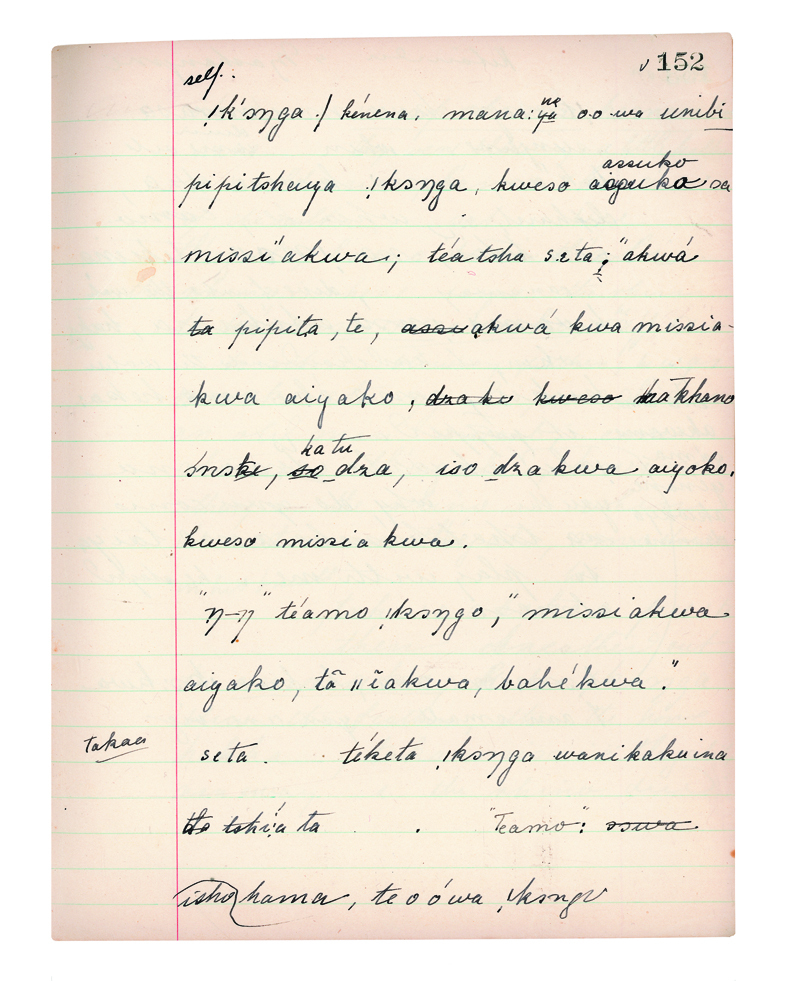 √152
self.
!k'sŋga / kénena, mana: ne o.o wa unibi
pipitshaya !ksŋga, kweso assuko sa
missi "akwa; téatsha seta; "akwá
ta pipita, te, assu akwá kwa missia-
kwa aiyako, dzako kweso hakhano
katu
só dza, iso dza kwa aiyoko.
kweso missia kwa.
"ŋ-ŋ" téamo !ksŋgo," missiakwa
aigako, tã ǁĩakwa, bahékwa."
takaa
seta. téketa !ksŋga wanikakuina
tshí:a ta . "Teamo": sswa
isho hama, te o ówa !ksngv